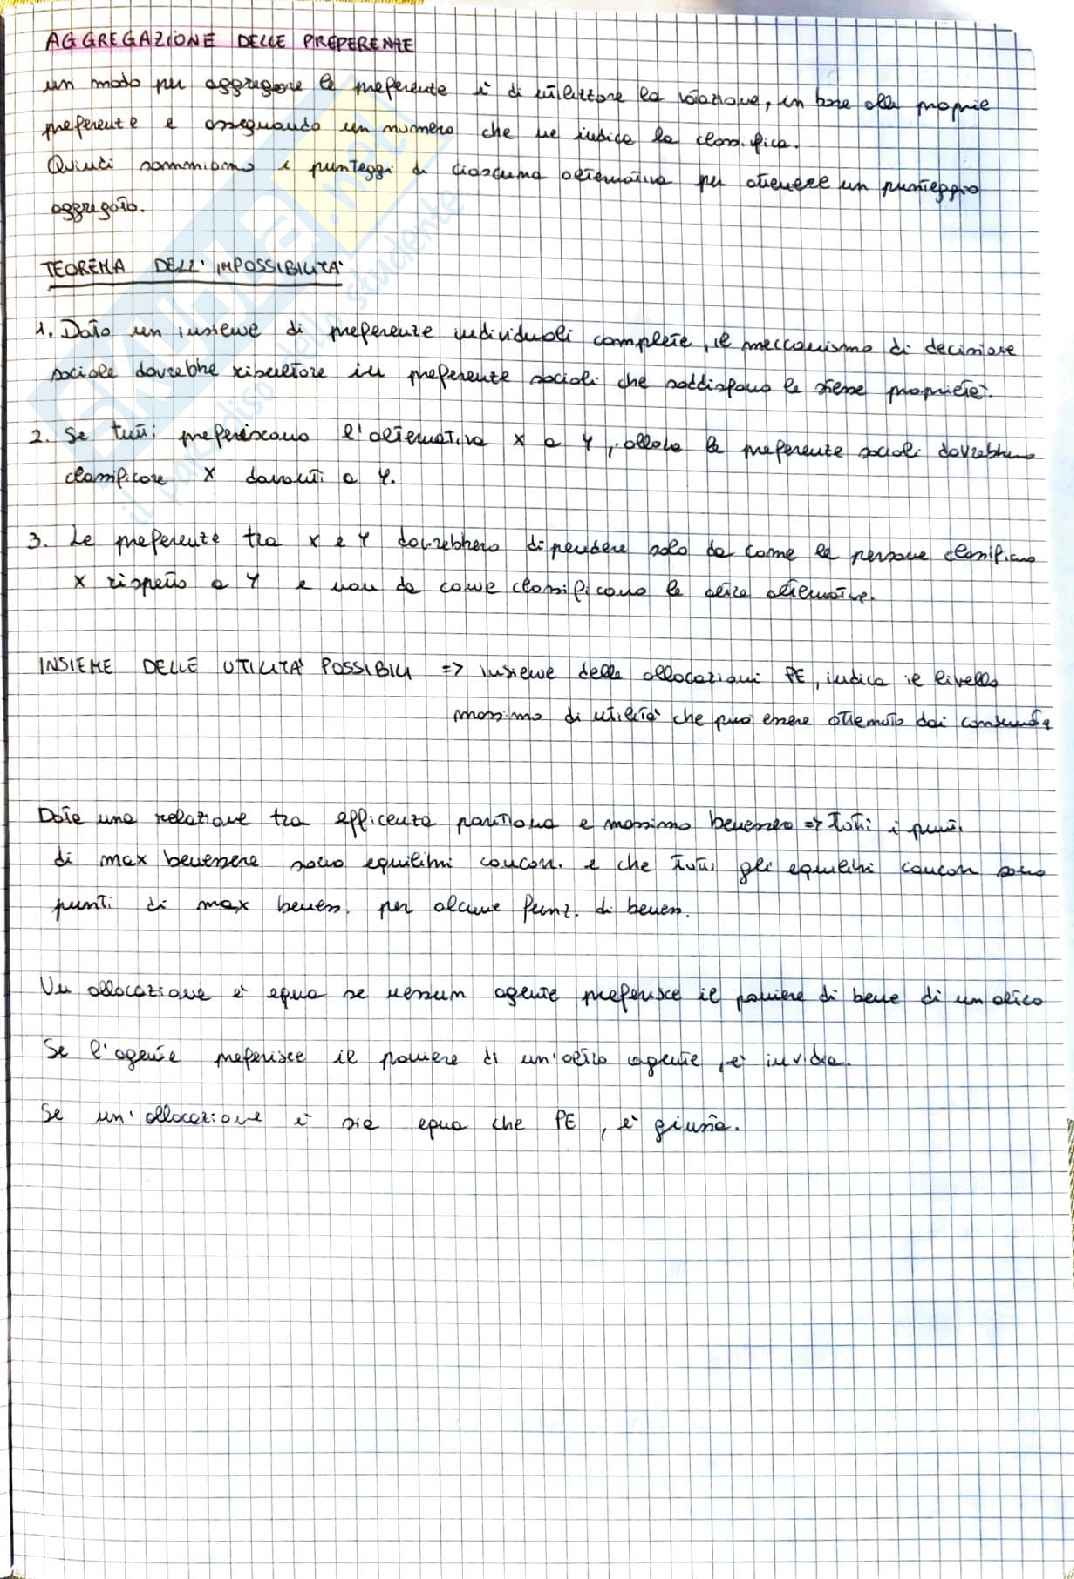 AGGREGAZIONE DELLE PREFERENZE
un modo per aggregare le preferenze è di utilizzare la votazione, in base alle proprie
preferenze e assegnando un numero che ne indica la classifica.
Quindi sommiamo i punteggi di ciascuna alternativa per ottenere un punteggio
aggregato.
TEOREMA DELL'IMPOSSIBILITA'
1. Dato un insieme di preferenze individuali complete, il meccanismo di decisione
sociale dovrebbe risultare in preferenze sociali che soddisfano le stesse proprietà.
2. Se tutti preferiscono l'alternativa X a Y, allora le preferenze sociali dovrebbero
classificare X davanti a Y.
3. Le preferenze tra X e Y dovrebbero dipendere solo da come le persone classificano
X rispetto a Y e non da come classificano le altre alternative.
INSIEME DELLE UTILITA' POSSIBILI => insieme delle allocazioni PE, indica il livello
massimo di utilità che può essere ottenuto dai
Date una relazione tra efficenza paretiana e massimo benessere => tutti i punti
di max benessere sono equilibri concorr. e che tutti gli equilibri concorr sono
punti di max beness. per alcune funz. di beness.
Un allocazione è equa se nessun agente preferisce il paniere di bene di un altro
Se l'agente preferisce il paniere di un'altro agente, è invidia.
Se un'allocazione è sia equa che PE, è giusta.